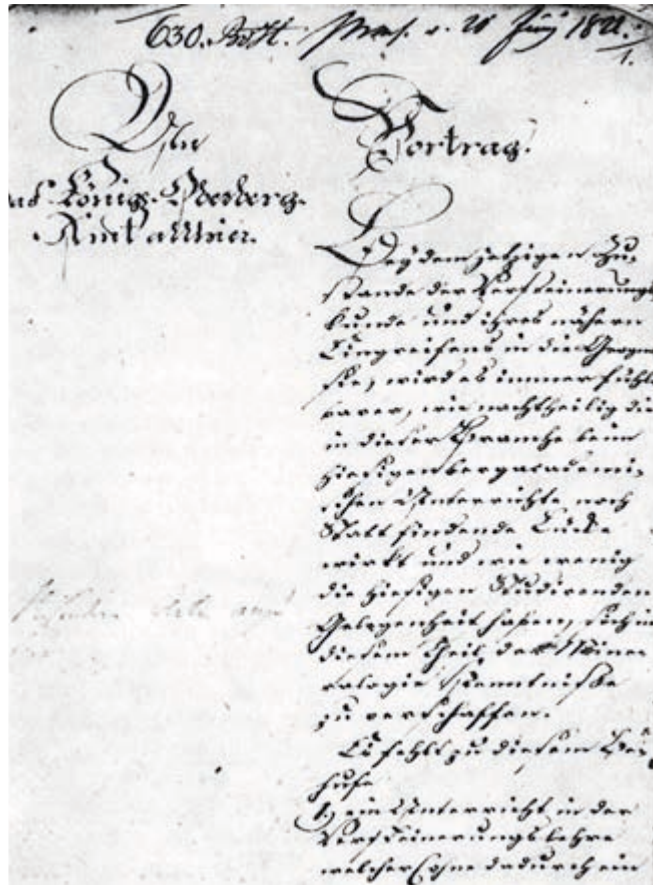 630. Präs. d. 20 Juny 1821.
1.
An
das Königl. Oberberg-
Amt allhier.
Vortrag.
Bey dem jetzigen Zu-
stande der Versteinerungs
kunde und ihres nähern
Eingreifens in die Geogno
sie, wird es immer fühl
barer, wie nachtheilig die
in dieser Branche beim
hiesigen bergacademi-
schen Unterrichte noch
Statt findende Lücke
wirkt und wie wenig
die hiesigen Studirenden
Gelegenheit haben, sich in
diesem Theil der Mine
ralogie Kenntniße
zu verschaffen.
Es fehlt zu diesem Be-
hufe
1) ein Unterricht in der
Versteinerungslehre
welcher ohne dadurch ein